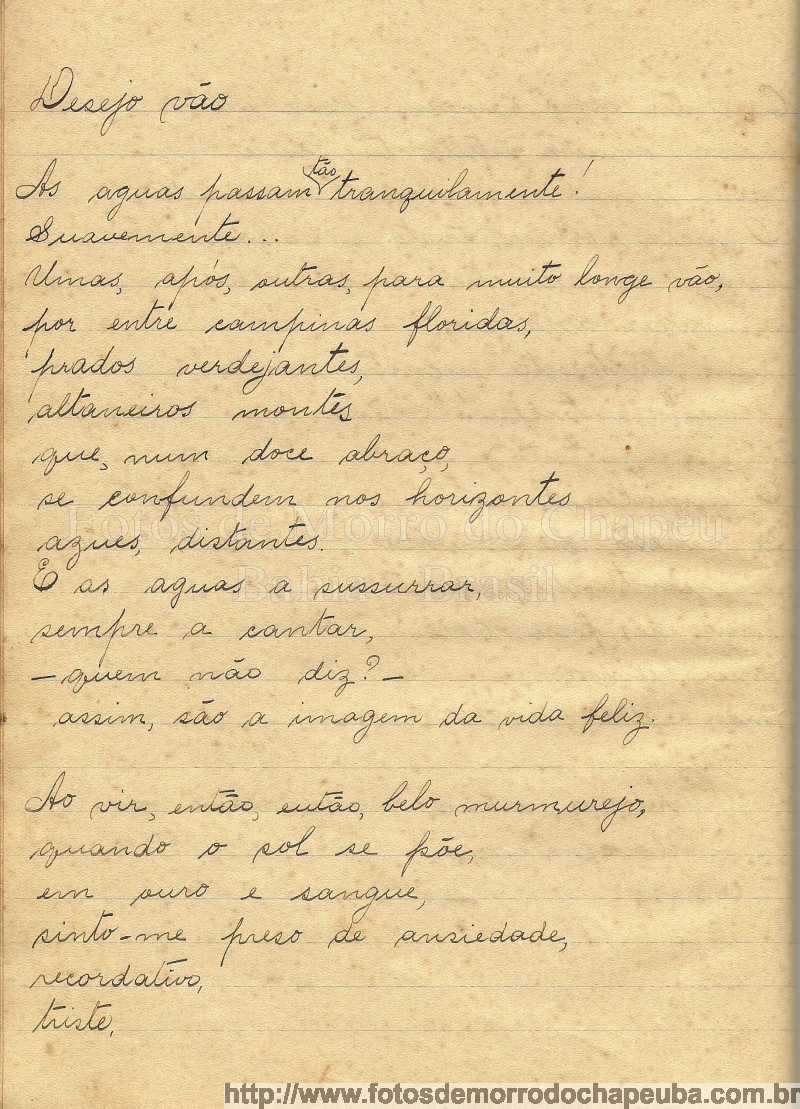 Desejo vão
As aguas passam tão tranquilamente!
Suavemente...
Umas, após, outras, para muito longe vão,
por entre campinas floridas,
prados verdejantes,
altaneiros montes
que, num doce abraço,
se confundem nos horizontes
azues, distantes.
E as aguas a sussurrar,
sempre a cantar,
— quem não diz? —
assim, são a imagem da vida feliz.
Ao vir, então, então, belo murmurejo,
quando o sol se põe,
em ouro e sangue,
sinto-me preso de ansiedade,
recordativo,
triste,
Fotos de Morro do Chapéu
Bahia - Brasil
http://www.fotosdemorrodochapeuba.com.br